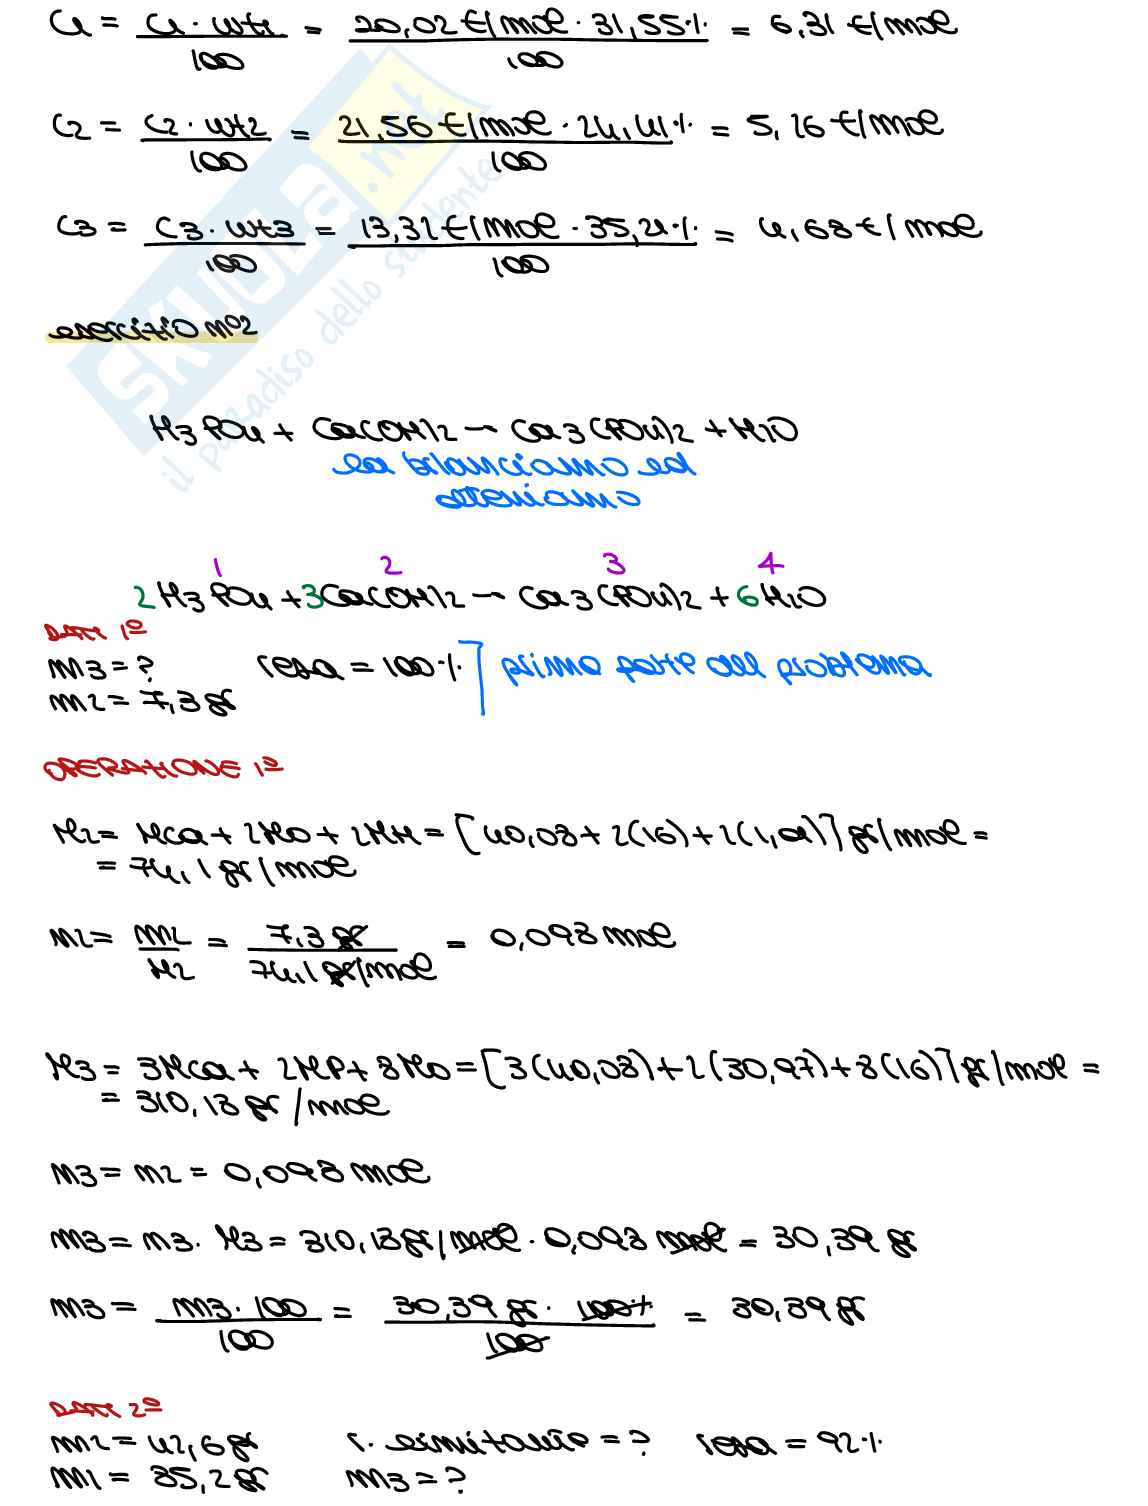 C1 = C1 · wt1 / 100 = 20,02 €/mol · 31,55% / 100 = 6,31 €/mol
C2 = C2 · wt2 / 100 = 21,56 €/mol · 24,41% / 100 = 5,26 €/mol
C3 = C3 · wt3 / 100 = 13,32 €/mol · 35,21% / 100 = 4,68 €/mol
SKUOLA.net
il paradiso dello studente
esercizio n°2
H3PO4 + Ca(OH)2 → Ca3(PO4)2 + H2O
la bilanciamo ed
otteniamo
1 2 3 4
2H3PO4 + 3Ca(OH)2 → Ca3(PO4)2 + 6H2O
DATI 1°
m3 = ? resa = 100% ] prima parte del problema
m2 = 7,3 gr
OPERAZIONE 1°
M2 = MCa + 2MO + 2MH = [40,08 + 2(16) + 2(1,01)] gr/mol =
= 74,1 gr/mol
n2 = m2 / M2 = 7,3 gr / 74,1 gr/mol = 0,098 mol
M3 = 3MCa + 2MP + 8MO = [3(40,08) + 2(30,97) + 8(16)] gr/mol =
= 310,18 gr/mol
n3 = n2 = 0,098 mol
m3 = n3 · M3 = 310,18 gr/mol · 0,098 mol = 30,39 gr
m3 = m3 · 100 / 100 = 30,39 gr · 100% / 100 = 30,39 gr
DATI 2°
m2 = 42,6 gr r. limitante = ? resa = 92%
m1 = 85,2 gr m3 = ?